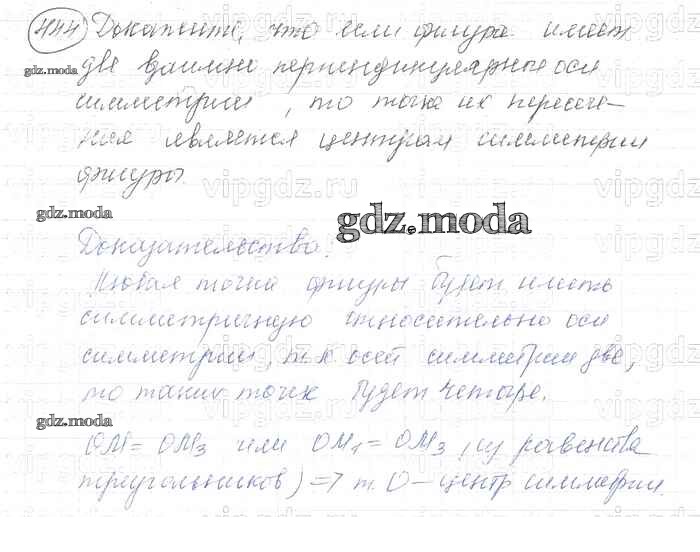 444 Докажите, что если фигура имеет
gdz.moda
две взаимно перпендикулярные оси
симметрии, то точка их пересече-
ния является центром симметрии
фигуры.
vipgdz.ru
gdz.moda
gdz.moda
Доказательство:
Любая точка фигуры будет иметь
симметричную относительно оси
симметрии, т.к осей симметрии две,
то таких точек будет четыре.
gdz.moda
OM = OM3 или OM1 = OM3, (из равенства
треугольников) => т. O - центр симметрии.